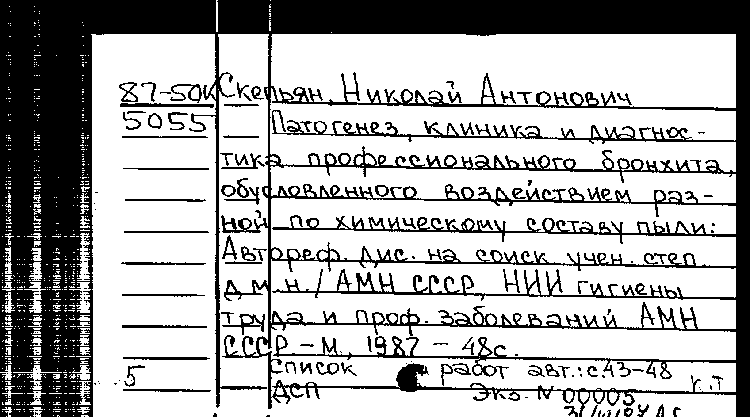 87-50К Скепьян, Николай Антонович
5055 Патогенез, клиника и диагнос-
тика профессионального бронхита,
обусловленного воздействием раз-
ной по химическому составу пыли:
Автореф. дис. на соиск учен. степ.
д.м.н. / АМН СССР, НИИ гигиены
труда и проф. заболеваний АМН
СССР. - М., 1987 - 48с.
Список работ авт.: с 43-48
5 ДСП Экз. N 00005 к.т